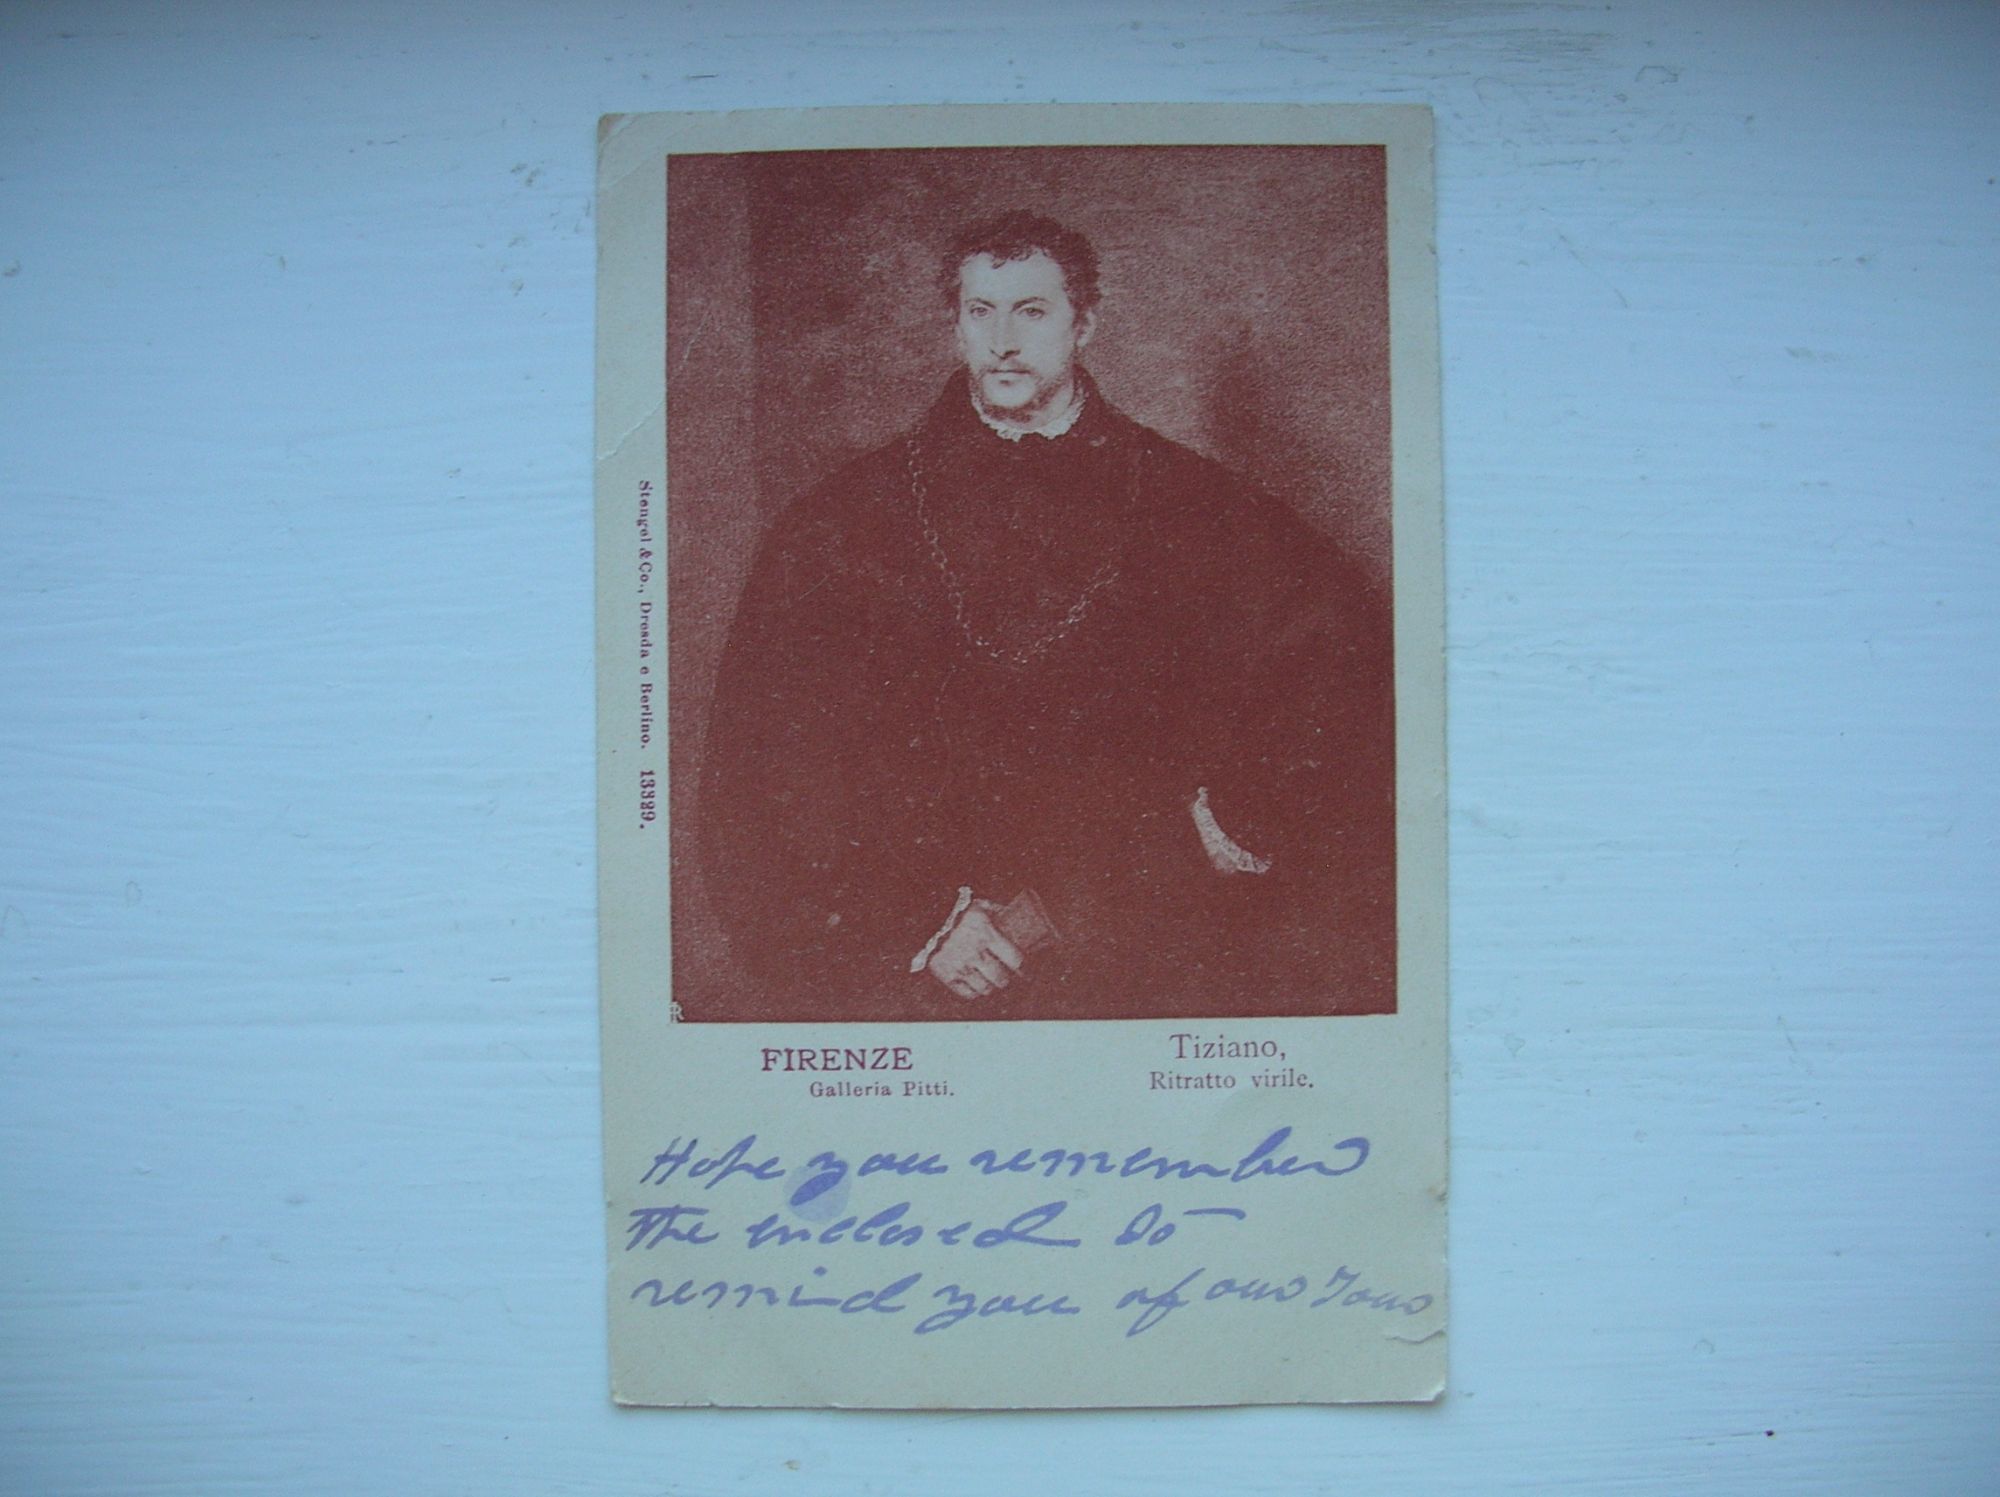 Stengel & Co., Dresda e Berlino. 13329.
FIRENZE
Galleria Pitti.
Tiziano,
Ritratto virile.
Hope you remember
The enclosed to
remind you of our Tour